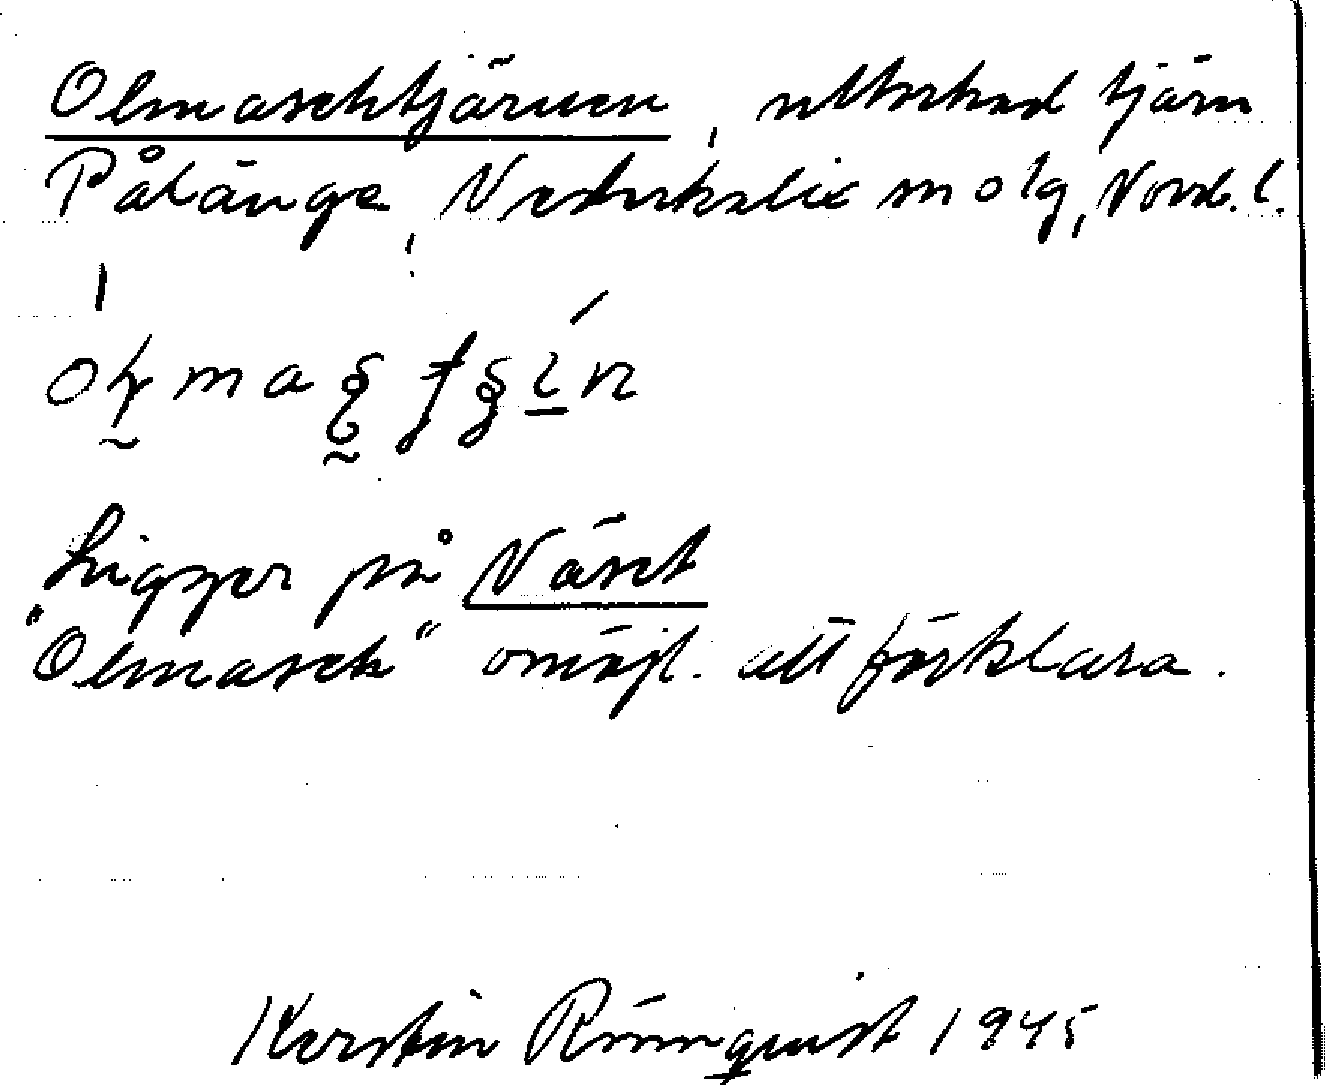 Olmaschtjärnen, uttorkad tjärn
Pålänge, Nederkalix m o lg, Norrb. l.
Ligger på Näset
"Olmasch" omöjl. att förklara.
Kerstin Rönnquist 1945